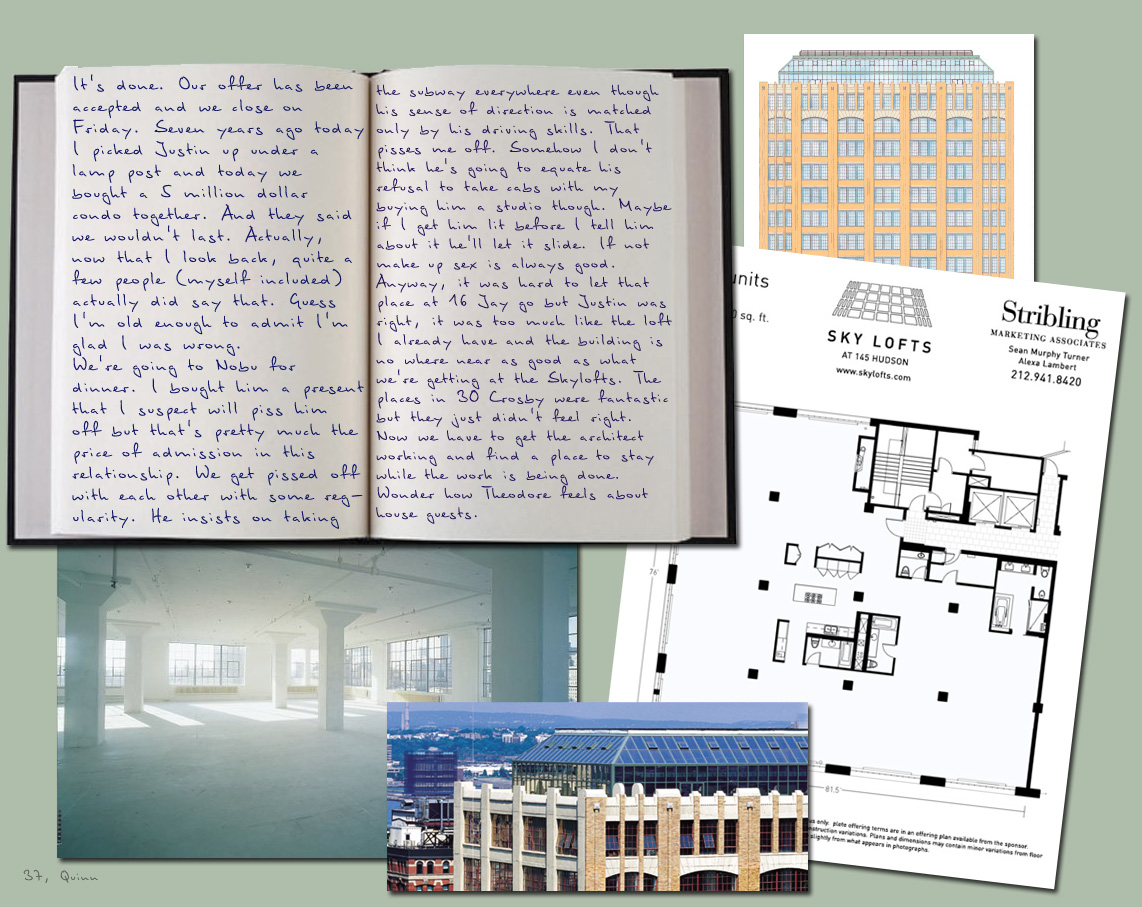 It's done. Our offer has been
accepted and we close on
Friday. Seven years ago today
I picked Justin up under a
lamp post and today we
bought a 5 million dollar
condo together. And they said
we wouldn't last. Actually,
now that I look back, quite a
few people (myself included)
actually did say that. Guess
I'm old enough to admit I'm
glad I was wrong.
We're going to Nobu for
dinner. I bought him a present
that I suspect will piss him
off but that's pretty much the
price of admission in this
relationship. We get pissed off
with each other with some reg-
ularity. He insists on taking
the subway everywhere even though
his sense of direction is matched
only by his driving skills. That
pisses me off. Somehow I don't
think he's going to equate his
refusal to take cabs with my
buying him a studio though. Maybe
if I get him lit before I tell him
about it he'll let it slide. If not
make up sex is always good.
Anyway, it was hard to let that
place at 16 Jay go but Justin was
right, it was too much like the loft
I already have and the building is
no where near as good as what
we're getting at the Skylofts. The
places in 30 Crosby were fantastic
but they just didn't feel right.
Now we have to get the architect
working and find a place to stay
while the work is being done.
Wonder how Theodore feels about
house guests.
units
0 sq. ft.
SKY LOFTS
AT 145 HUDSON
www.skylofts.com
Stribling
MARKETING ASSOCIATES
Sean Murphy Turner
Alexa Lambert
212.941.8420
76'
81.5'
only. plete offering terms are in an offering plan available from the sponsor.
nstruction variations. Plans and dimensions may contain minor variations from floor
slightly from what appears in photographs.
37, Quinn